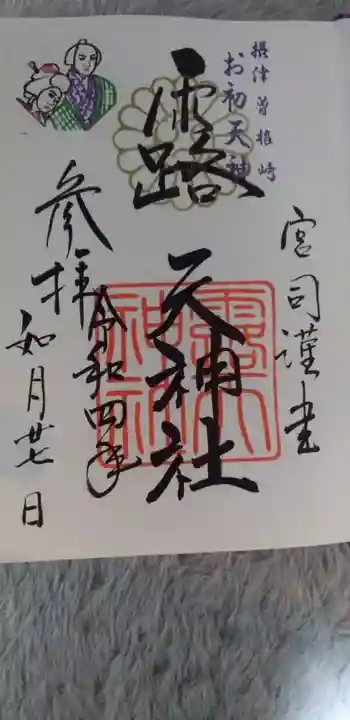 摂津曽根崎
お初天神
宮司謹書
露天神社
露天神社
参拝
令和四年
如月廿七日